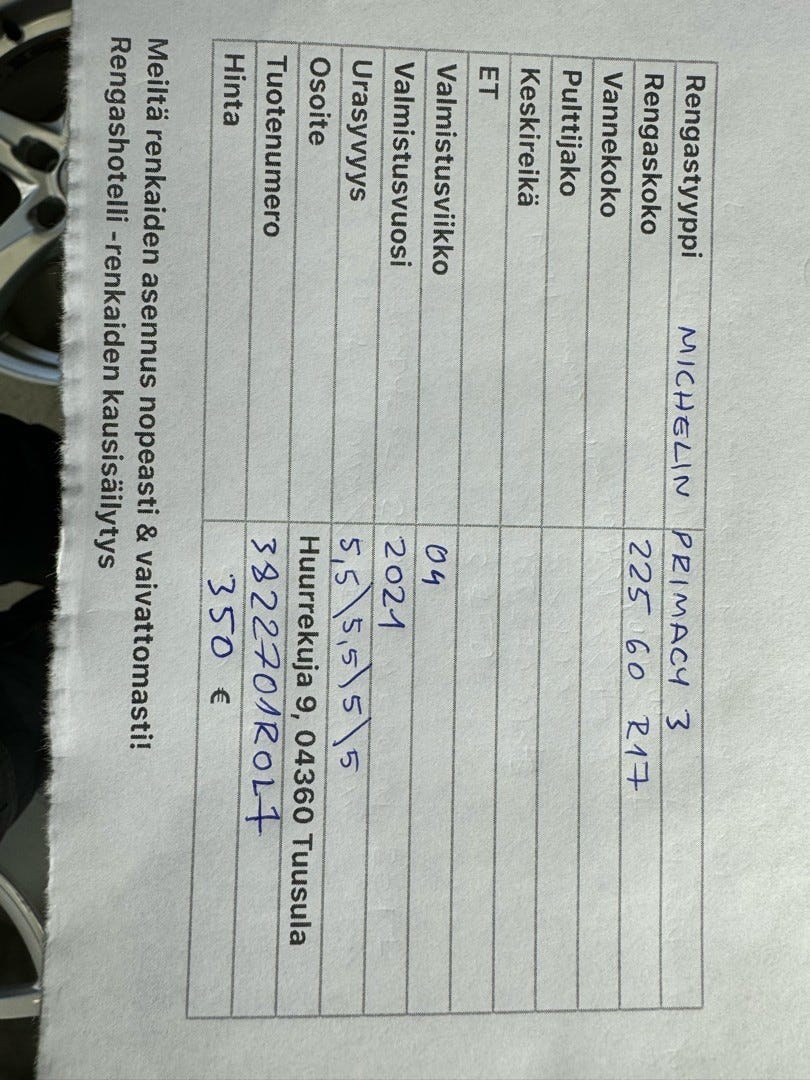 Rengastyyppi MICHELIN PRIMACY 3
Rengaskoko 225 60 R17
Vannekoko
Pulttijako
Keskireikä
ET
Valmistusviikko 04
Valmistusvuosi 2021
Urasyvyys 5,5\5,5\5\5
Osoite Huurrekuja 9, 04360 Tuusula
Tuotenumero
Hinta 350 €
Meiltä renkaiden asennus nopeasti & vaivattomasti!
Rengashotelli - renkaiden kausisäilytys